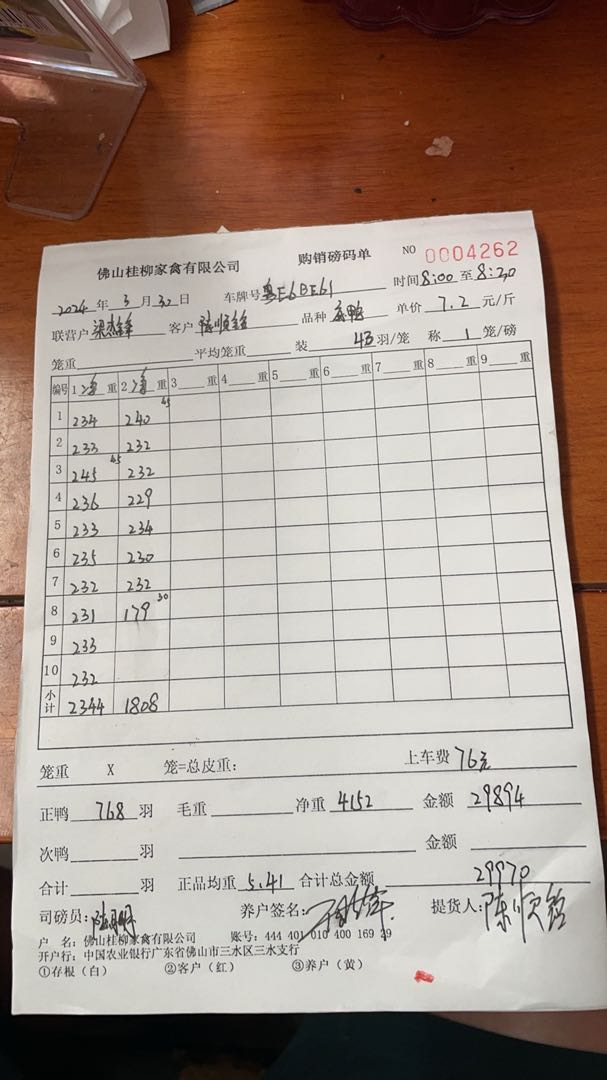 佛山桂柳家禽有限公司 购销磅码单 NO 0004262
2024年3月30日 车牌号粤E6BE61 时间8:00至8:20
联营户 客户陈顺 品种 单价7.2元/斤
笼重 平均笼重 装43羽/笼 称1笼/磅
编号 1净重 2净重 3重 4重 5重 6重 7重 8重 9重
1 234 240 45
2 233 232
3 245 45 232
4 236 229
5 233 234
6 235 230
7 232 232
8 231 179 30
9 233
10 232
小计 2344 1808
笼重 X 笼=总皮重: 上车费76元
正鸭768羽 毛重 净重4152 金额29894
次鸭 羽 金额
合计 羽 正品均重5.41 合计总金额29970
司磅员: 养户签名: 提货人:陈顺
户 名:佛山桂柳家禽有限公司 账号:444 401 010 400 169 29
开户行:中国农业银行广东省佛山市三水区三水支行
①存根(白) ②客户(红) ③养户(黄)